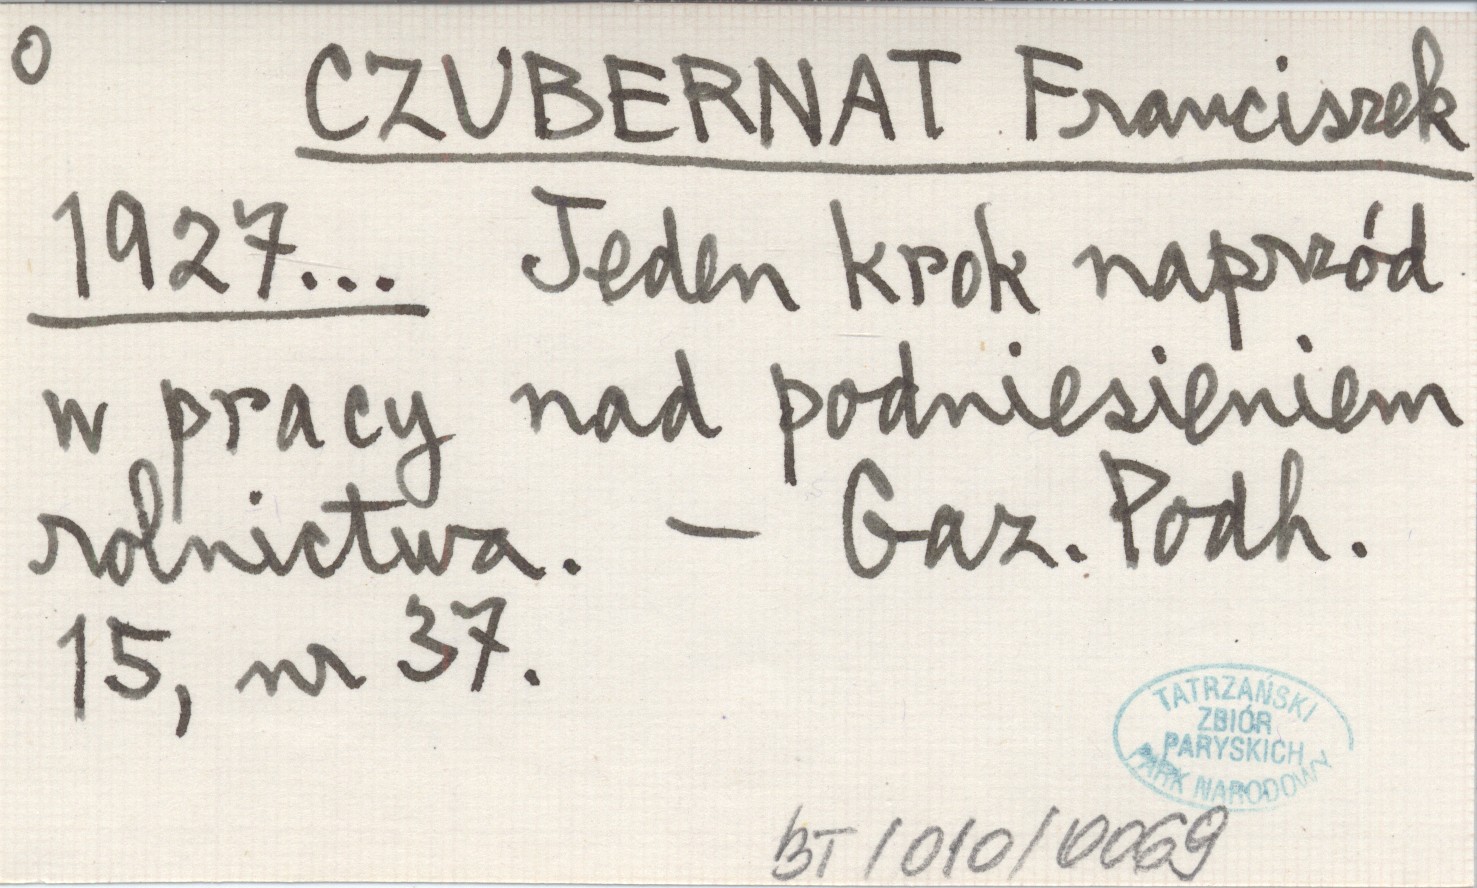 O
CZUBERNAT Franciszek
1927... Jeden krok naprzód
w pracy nad podniesieniem
rolnictwa. — Gaz. Podh.
15, nr 37.
TATRZAŃSKI
ZBIÓR
PARYSKICH
PARK NARODOWY
BT/010/0069